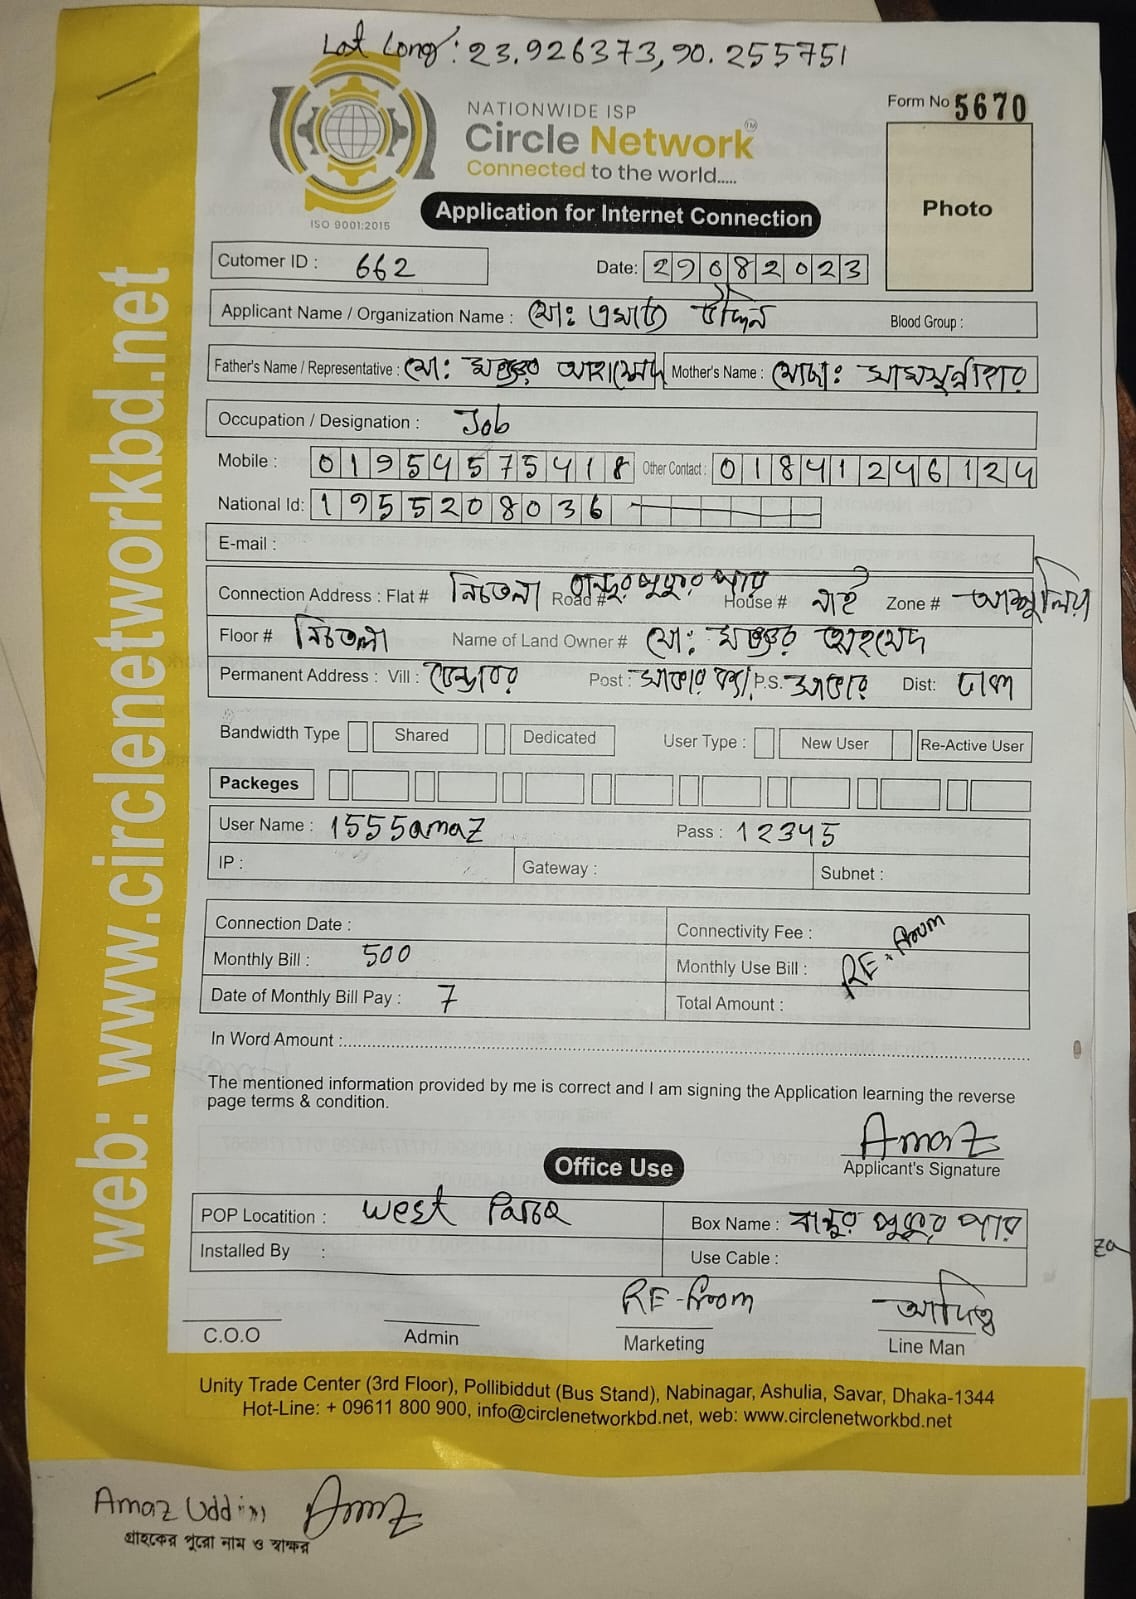 Lat Long: 23.926373, 90.255751
NATIONWIDE ISP
Circle Network TM
Connected to the world.....
ISO 9001:2015
Form No 5670
Photo
Application for Internet Connection
Cutomer ID : 662 Date: 29082023
Applicant Name / Organization Name : মোঃ এমাজ উদ্দিন Blood Group :
Father's Name / Representative : মো: মঞ্জুর আহাম্মেদ Mother's Name : মোছাঃ সামসুন্নাহার
Occupation / Designation : Job
Mobile : 01954575418 Other Contact : 01841246124
National Id: 1955208036
E-mail :
Connection Address : Flat # নিচতলা Road # পুকুর পার House # নাই Zone # আশুলিয়া
Floor # নিচতলা Name of Land Owner # মো: মঞ্জুর আহমেদ
Permanent Address : Vill : Post : P.S. Dist: ঢাকা
Bandwidth Type Shared Dedicated User Type : New User Re-Active User
Packeges
User Name : 1555amaz Pass : 12345
IP : Gateway : Subnet :
Connection Date : Connectivity Fee :
Monthly Bill : 500 Monthly Use Bill :
Date of Monthly Bill Pay : 7 Total Amount :
In Word Amount :
The mentioned information provided by me is correct and I am signing the Application learning the reverse
page terms & condition.
Amaz
Applicant's Signature
Office Use
POP Locatition : West Para Box Name : পুকুর পার
Installed By : Use Cable :
C.O.O Admin Marketing Line Man
Unity Trade Center (3rd Floor), Pollibiddut (Bus Stand), Nabinagar, Ashulia, Savar, Dhaka-1344
Hot-Line: + 09611 800 900, info@circlenetworkbd.net, web: www.circlenetworkbd.net
web: www.circlenetworkbd.net
Amaz Uddin Amaz
গ্রাহকের পুরো নাম ও স্বাক্ষর